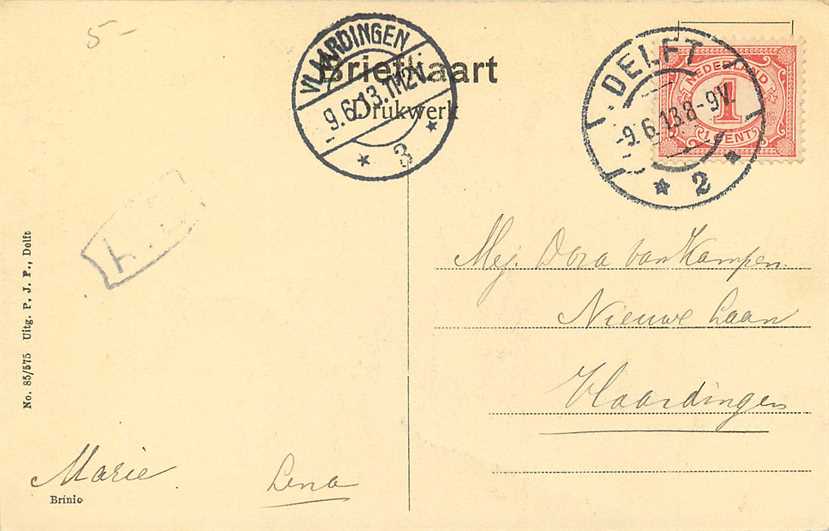 5-
Briefkaart
Drukwerk
VLAARDINGEN
9.6.13.7M2V.
* 3 *
DELFT
-9.6.13.8-9V.
* 2 *
NEDERLAND
1
CENT
Mej. Dora van Kampen.
Nieuwe Laan
Vlaardingen
No. 85/575 Uitg. P. J. P., Delft
Marie
Lena
Brinio